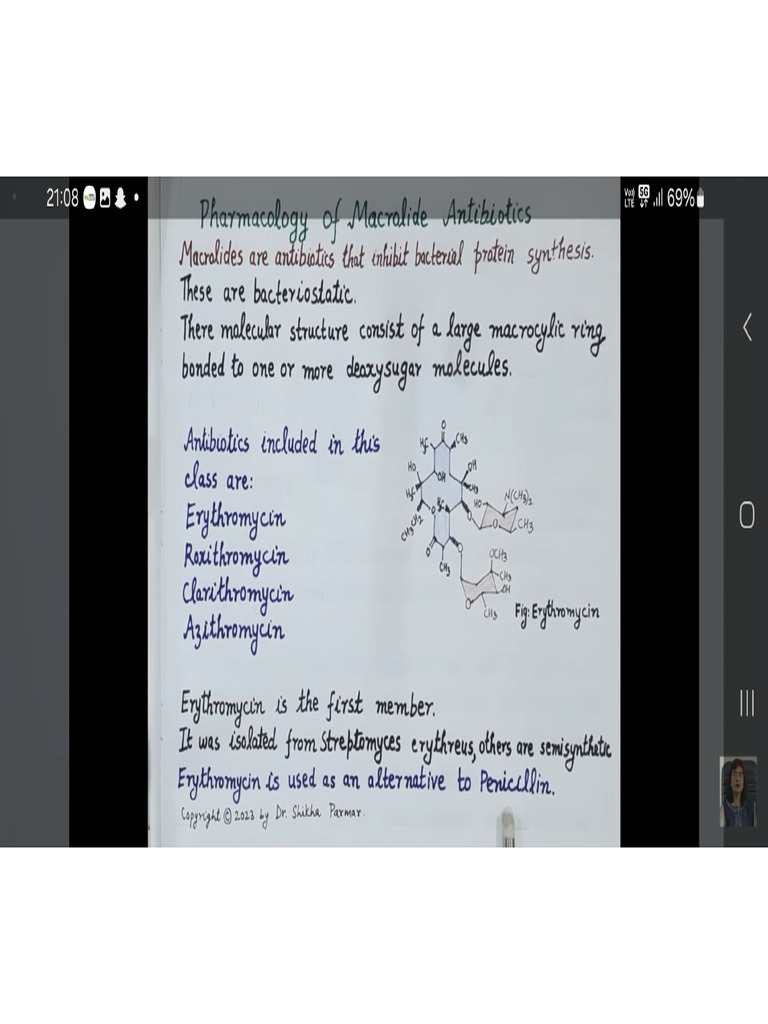 21:08
Vo)) LTE 5G 69%
Pharmacology of Macrolide Antibiotics
Macrolides are antibiotics that inhibit bacterial protein synthesis.
These are bacteriostatic.
There molecular structure consist of a large macrocylic ring
bonded to one or more deoxysugar molecules.
Antibiotics included in this
class are:
Erythromycin
Roxithromycin
Clarithromycin
Azithromycin
O
H3C CH3
HO OH OH
H3C CH3
H3C HO N(CH3)2
O O O CH3
CH3CH2
O O OCH3
CH3 CH3
OH
O CH3
Fig: Erythromycin
Erythromycin is the first member.
It was isolated from Streptomyces erythreus, others are semisynthetic
Erythromycin is used as an alternative to Penicillin.
Copyright © 2023 by Dr. Shikha Parmar.